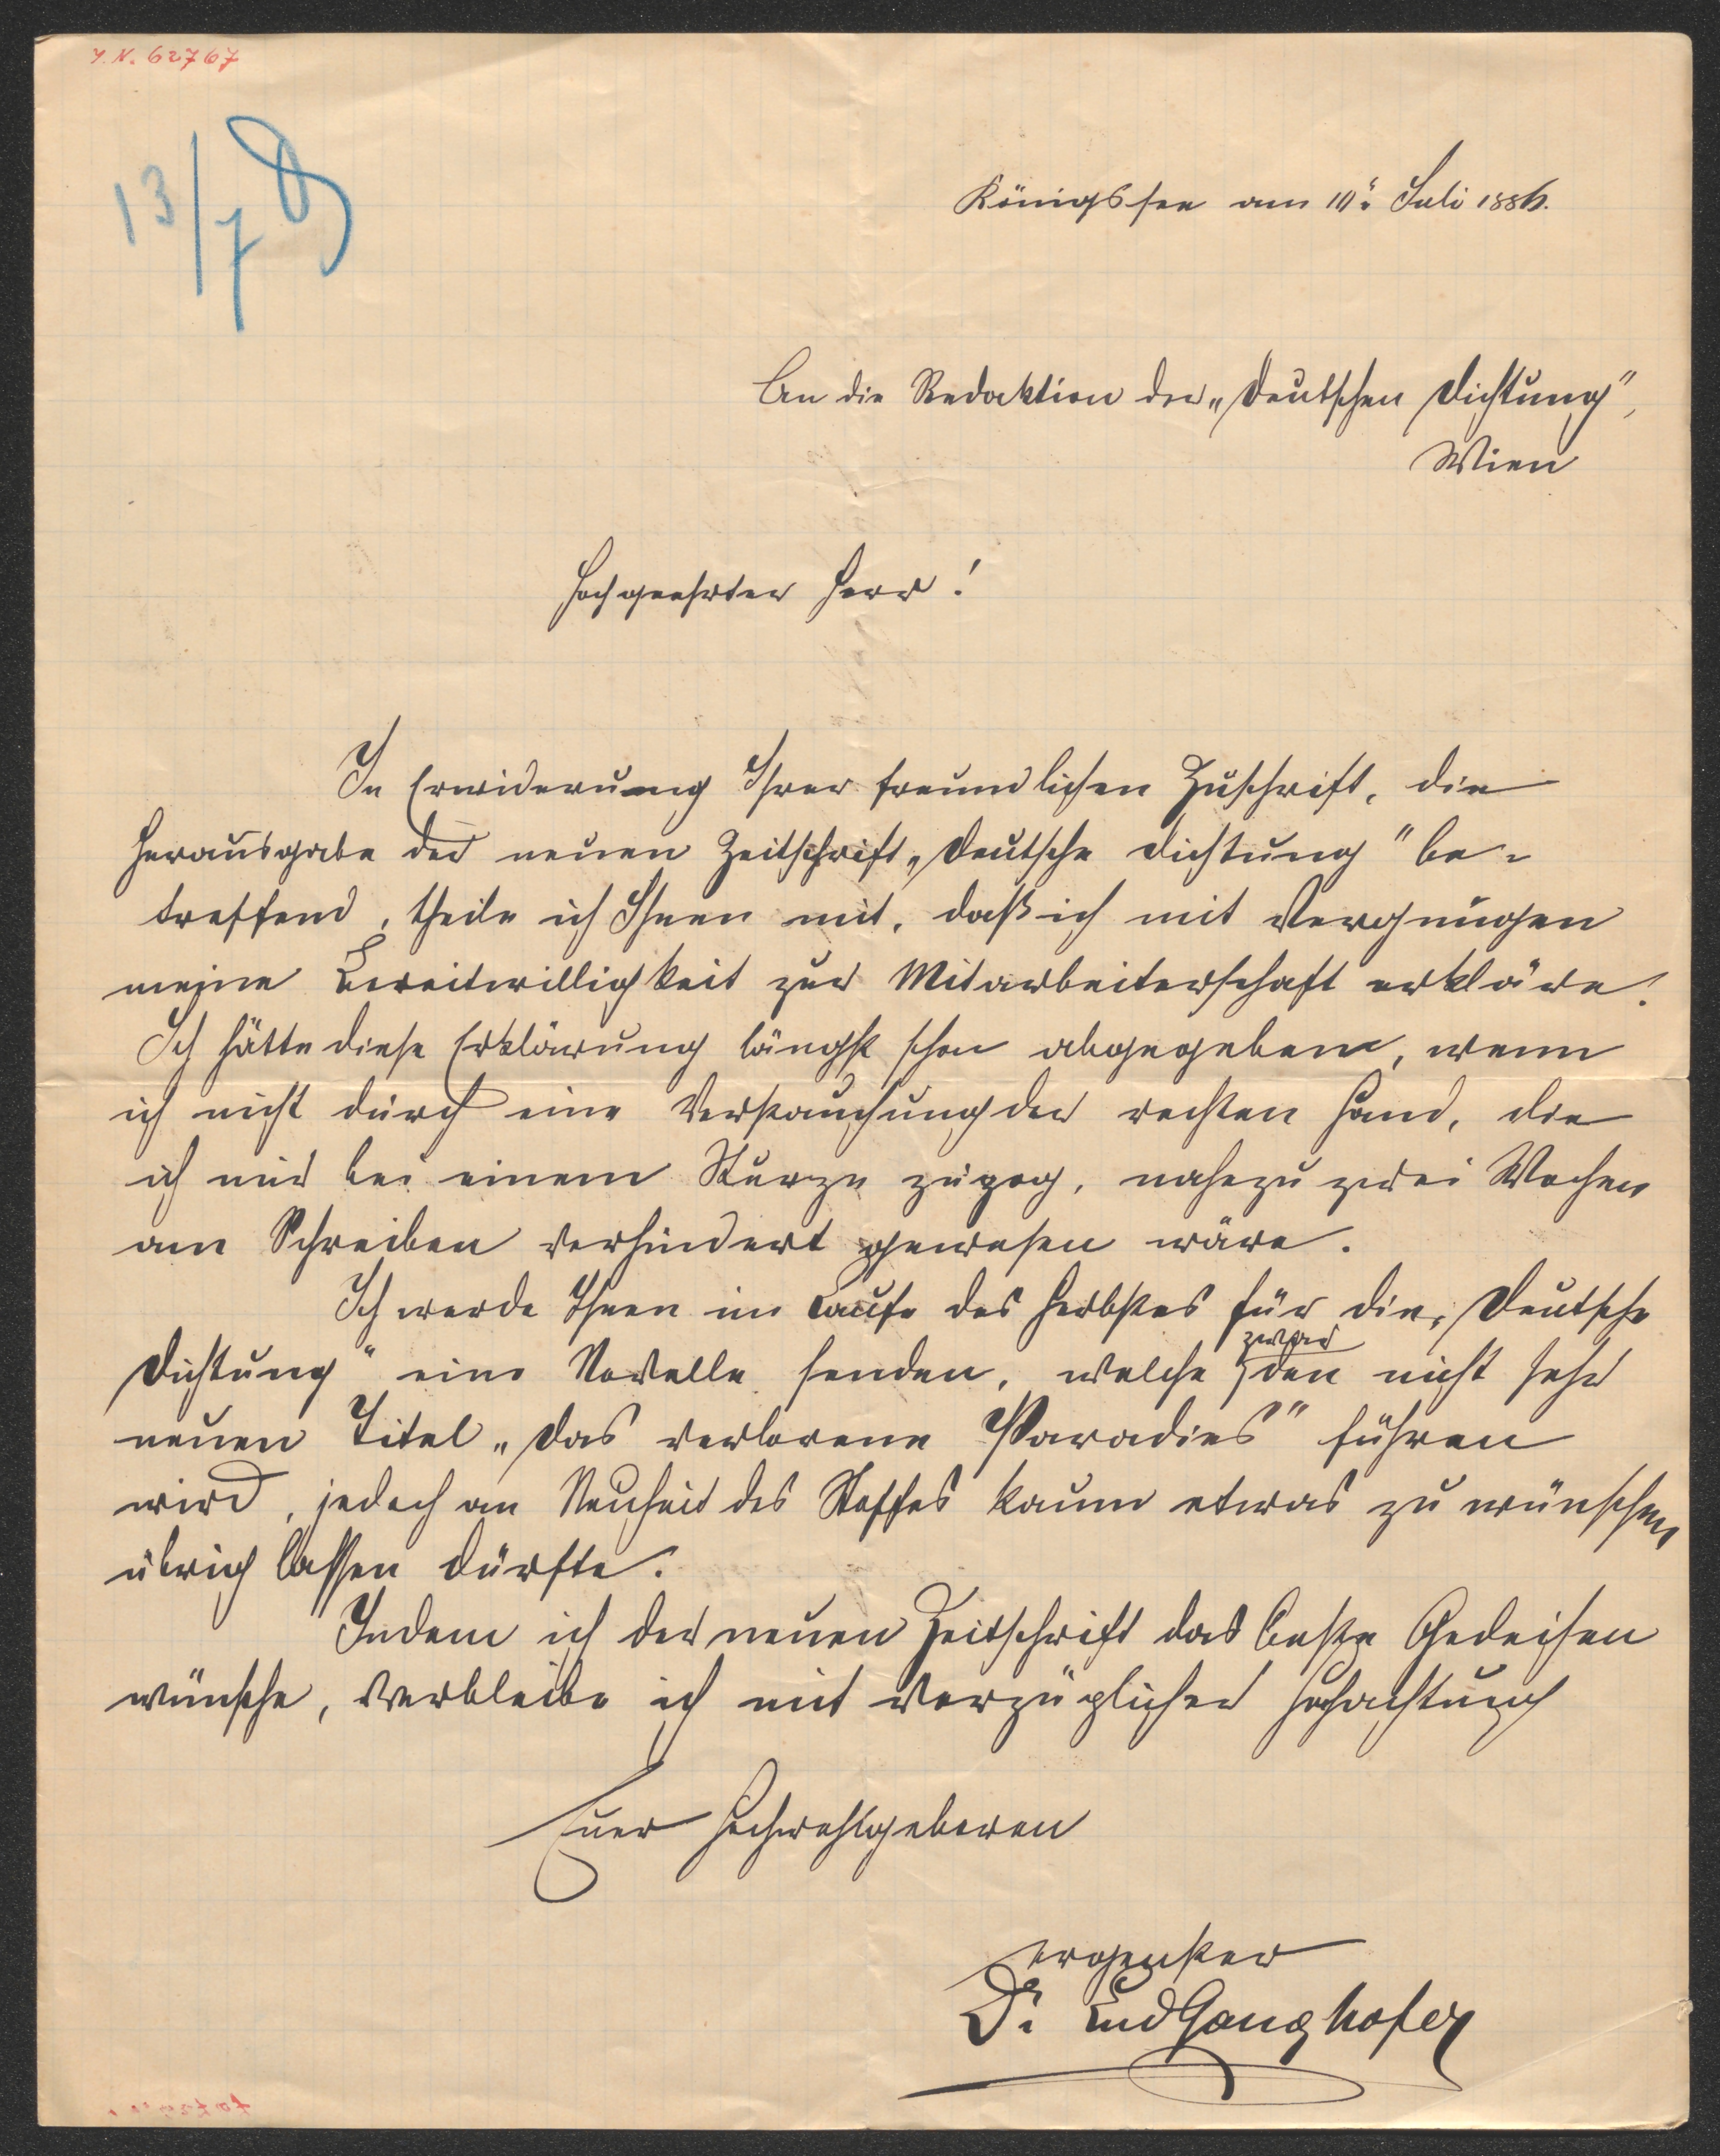 I. N. 62767
13/7
Königssee am 10. Juli 1886.
An die Redaktion der „Deutschen Dichtung",
Wien
Hochgeehrter Herr!
In Erwiderung Ihrer freundlichen Zuschrift, die
Herausgabe der neuen Zeitschrift „Deutsche Dichtung" be-
treffend, theile ich Ihnen mit, daß ich mit Vergnügen
meine Bereitwilligkeit zur Mitarbeiterschaft erkläre.
Ich hätte diese Erklärung längst schon abgegeben, wenn
ich nicht durch eine Verstauchung der rechten Hand, die
ich mir bei einem Sturze zuzog, nahezu zwei Wochen
am Schreiben verhindert gewesen wäre.
Ich werde Ihnen im Laufe des Herbstes für die „Deutsche
Dichtung" eine Novelle senden, welche zwar den nicht sehr
neuen Titel „Das verlorene Paradies" führen
wird, jedoch an Neuheit des Stoffes kaum etwas zu wünschen
übrig lassen dürfte.
Indem ich der neuen Zeitschrift das beste Gedeihen
wünsche, verbleibe ich mit vorzüglicher Hochachtung
Euer Hochwohlgeboren
ergenster
Dr. Ludw Ganghofer